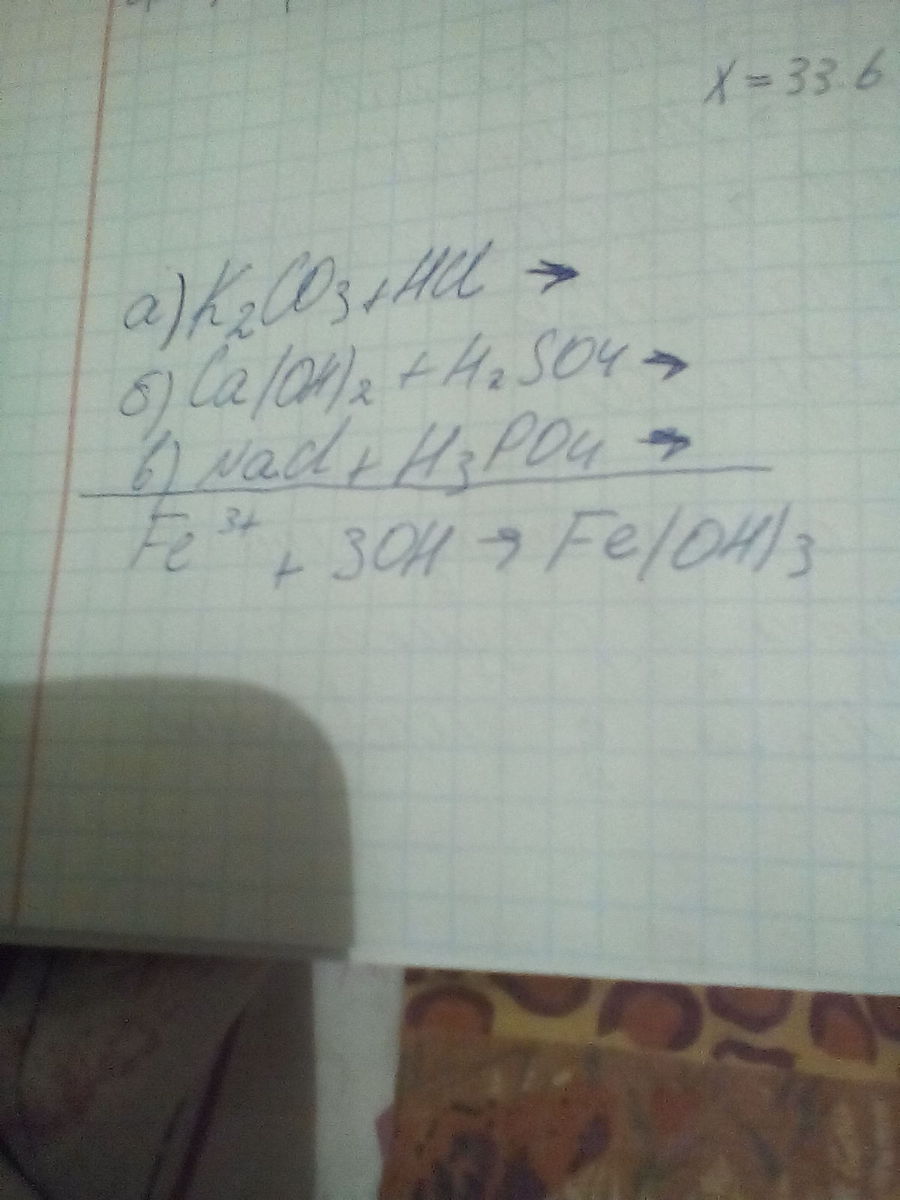 X = 33.6
а) K₂CO₃ + HCl →
б) Ca(OH)₂ + H₂SO₄ →
в) NaCl + H₃PO₄ →
Fe³⁺ + 3OH → Fe(OH)₃